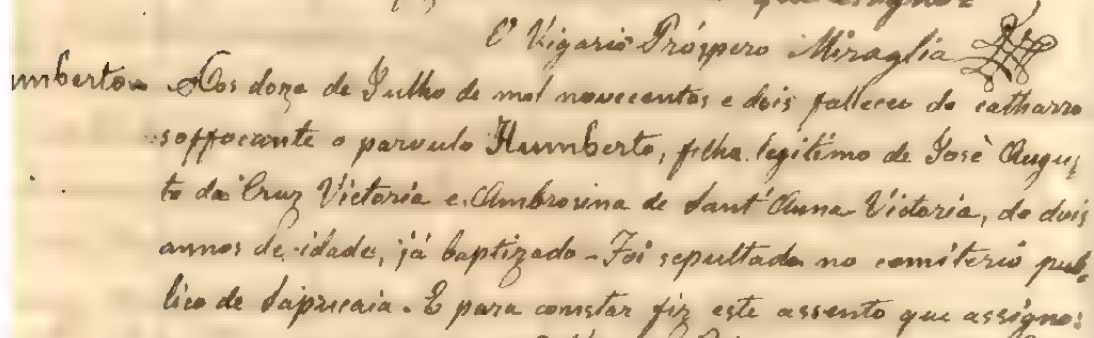 que assigno:
O Vigario Próspero Miraglia
umberto Aos doze de Julho de mil novecentos e dois falleceu de catharro
soffocante o parvulo Humberto, filho legitimo de José Augus
to da Cruz Victoria e Ambrosina de Sant'Anna Victoria, de dois
annos de idade, já baptizado - Foi sepultado no cemiterio pub-
lico de Sapucaia. E para constar fiz este assento que assigno: